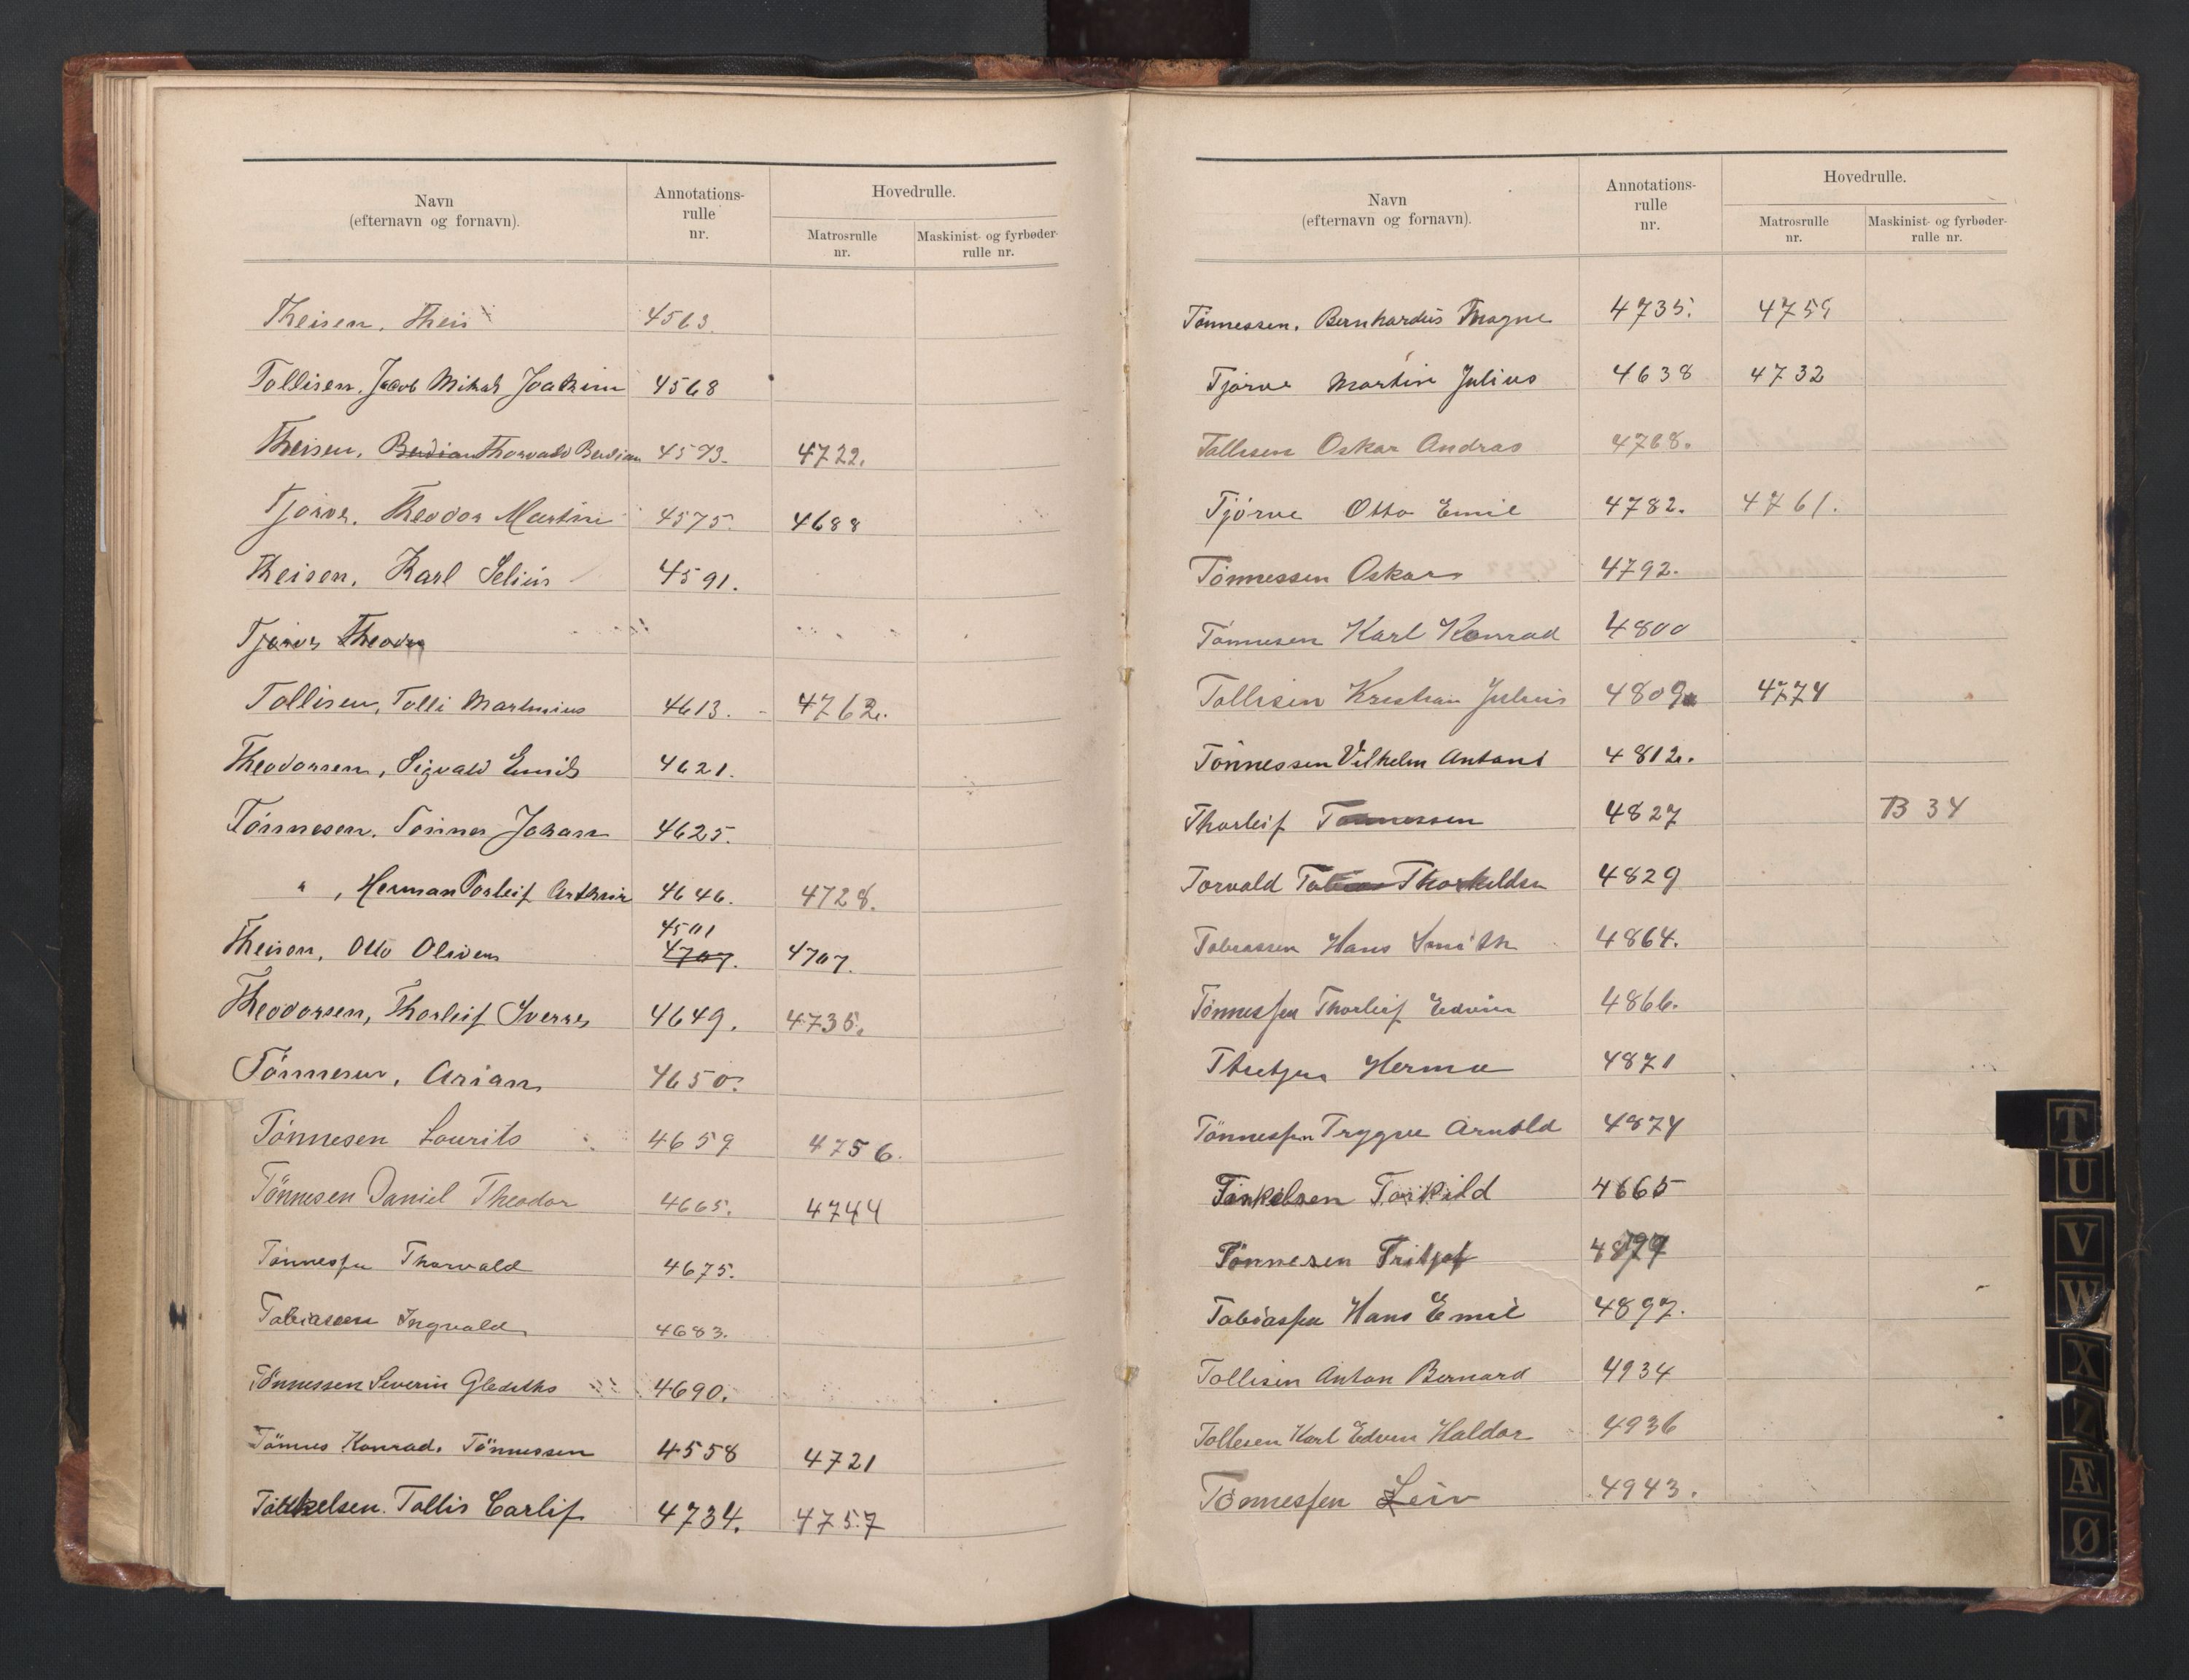 Navn
(efternavn og fornavn).
Annotations-
rulle
nr.
Hovedrulle.
Matrosrulle
nr.
Maskinist- og fyrbøder-
rulle nr.
Theisen, Theis 4563.
Tollisen, Jacob Mikal Joakim 4568
Theisen, Berdian Thorvald Berdian 4573. 4722.
Tjørve, Theodor Martin 4575. 4688
Theisen, Karl Selius 4591.
Tjørve Theodor
Tollisen, Tolli Martinius 4613. - 4762.
Theodorsen, Sigvald Emil 4621.
Tönnesen, Tönnes Johan 4625.
" , Herman Torleif Arthur 4646. 4728.
4501
Theisen, Otto Oliver 4707. 4707.
Theodorsen, Thorleif Sverre 4649. 4735.
Tönnesen, Arian 4650.
Tönnesen Laurits 4659 4756.
Tönnesen Daniel Theodor 4665. 4744
Tönnessen Thorvald 4675.
Tobiassen Ingvald 4683.
Tönnessen Severin Gleditho 4690.
Tönnes Konrad. Tönnessen 4558 4721
Tollis Carlif 4734. 4757
Navn
(efternavn og fornavn).
Annotations-
rulle
nr.
Hovedrulle.
Matrosrulle
nr.
Maskinist- og fyrbøder-
rulle nr.
Tönnessen, Bernhardus Magne 4735. 4759
Tjørve Martin Julius 4638 4732
Tollisen Oskar Andras 4768.
Tjörve Otto Emil 4782. 4761.
Tönnessen Oskar 4792.
Tönnesen Karl Konrad 4800
Tollisen Kristian Julius 4809 4774
Tönnessen Vilhelm Antoni 4812.
Thorleif Tönnessen 4827 B 34
Torvald Thorkeldsen 4829
Tobiassen Hans Smith 4864.
Tönnessen Thorleif Edvin 4866.
Herma 4871
Tönnessen Trygve Arnold 4874
Torkild 4665
Tönnesen Fritjof 4877
Tobiassen Hans Emil 4897.
Tollisen Anton Bernard 4934
Tollesen Karl Edvin Haldor 4936
Tönnessen Leiv 4943.
T
U
V
W
X
Z
Æ
Ø